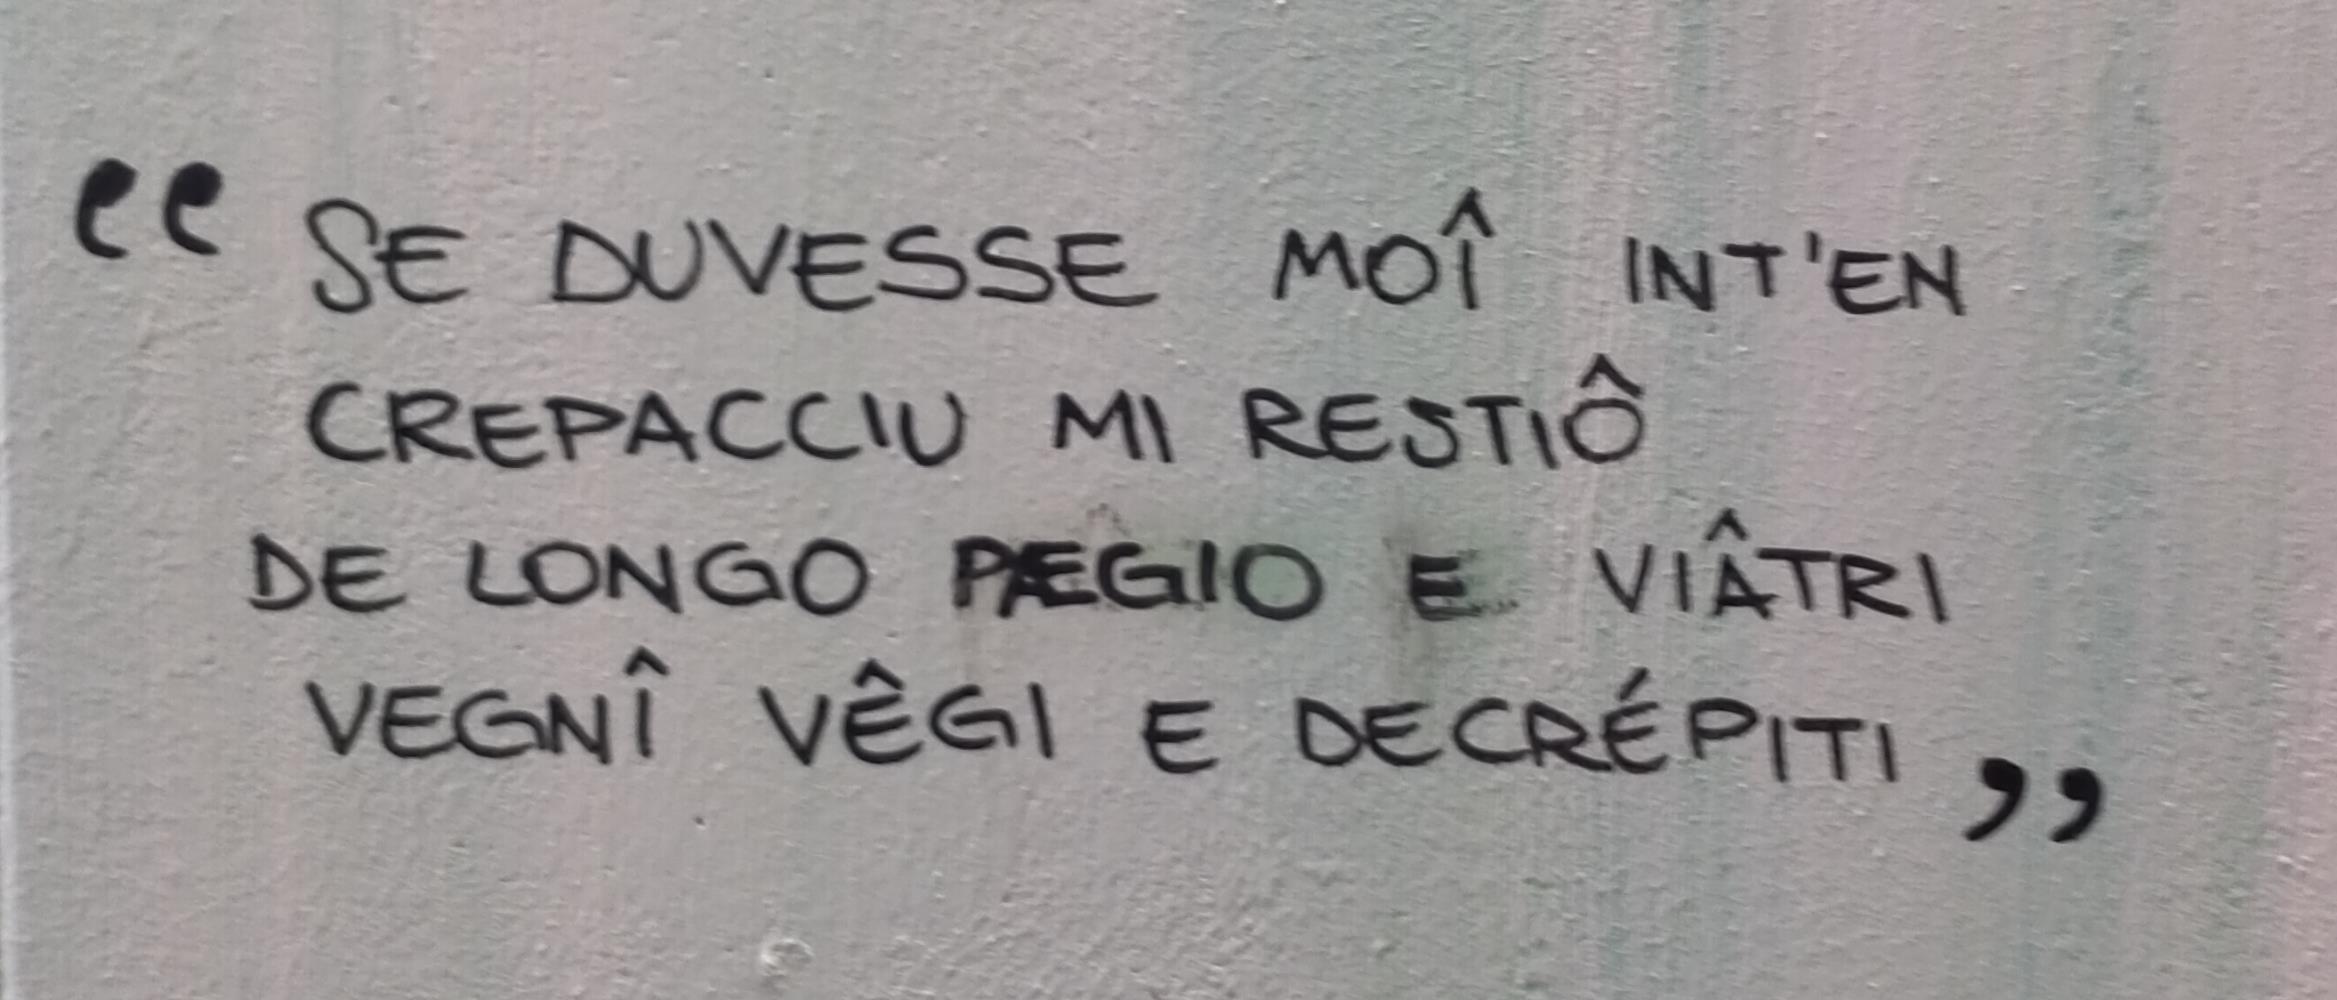 “SE DUVESSE MOÎ INT'EN
CREPACCIU MI RESTIÔ
DE LONGO PÆGIO E VIÂTRI
VEGNÎ VÊGI E DECRÉPITI”